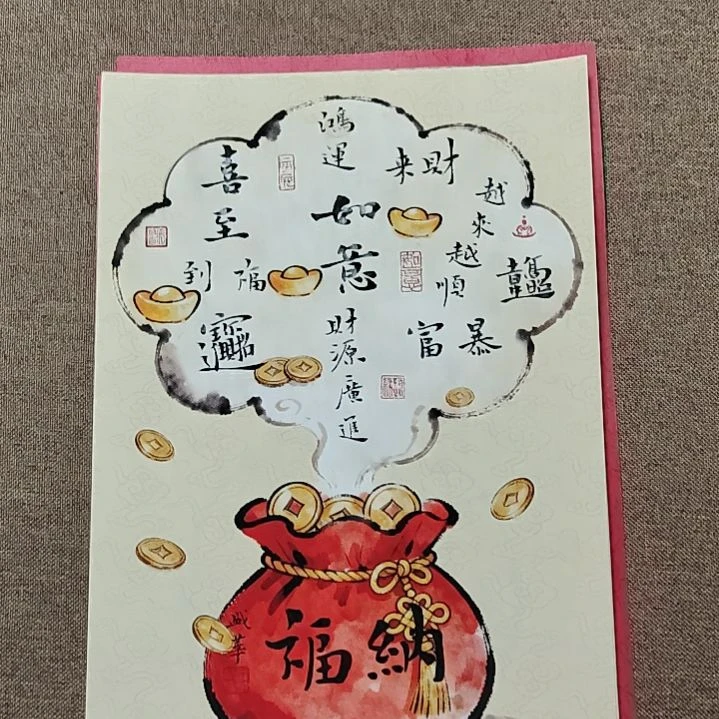 越來越順
財来
鴻運
如意
財源廣進
喜至
福到
暴富
納福